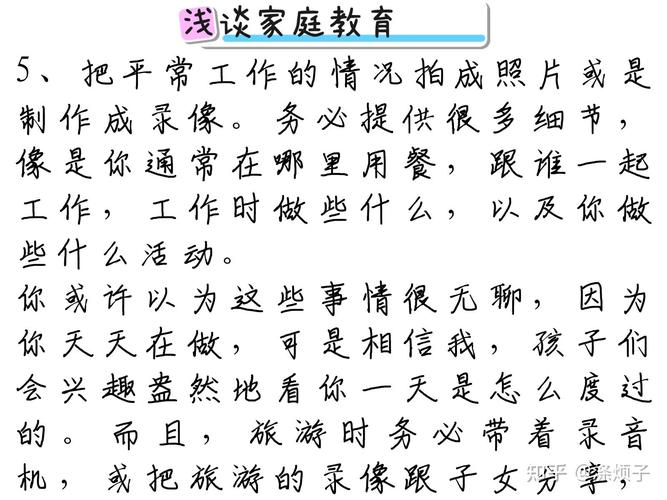 浅谈家庭教育
5、把平常工作的情况拍成照片或是
制作成录像。务必提供很多细节，
像是你通常在哪里用餐，跟谁一起
工作，工作时做些什么，以及你做
些什么活动。
你或许以为这些事情很无聊，因为
你天天在做，可是相信我，孩子们
会兴趣盎然地看你一天是怎么度过
的。而且，旅游时务必带着录音
机，或把旅游的录像跟子女分享，
知乎 @烦子